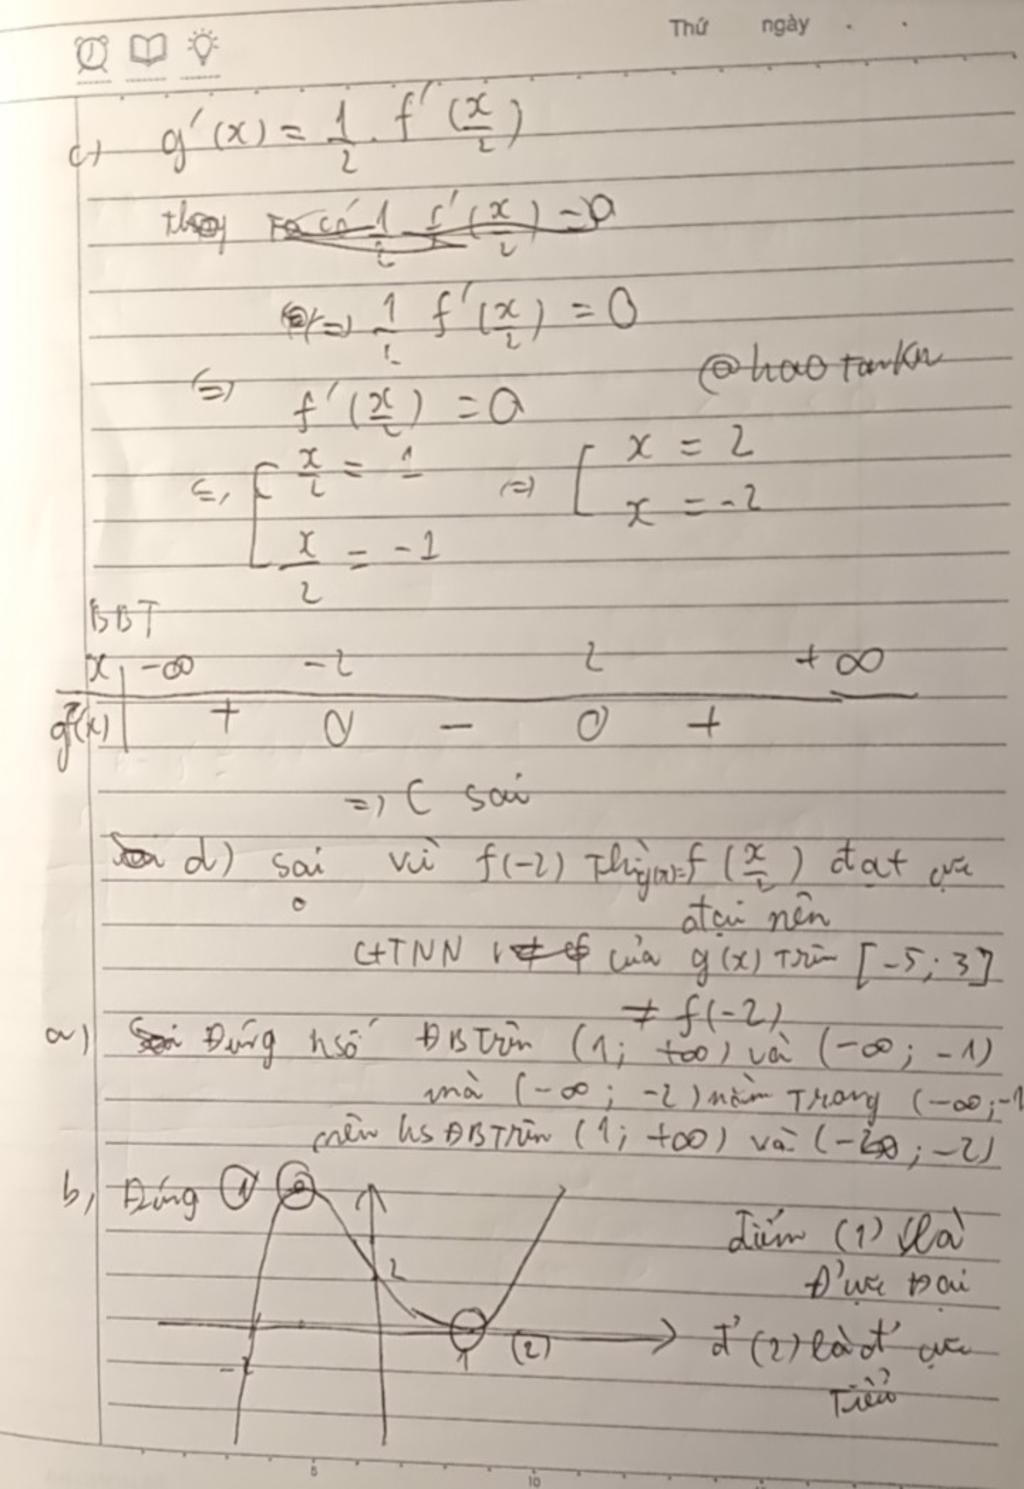 Thứ ngày . .
c) g'(x) = 1/2 . f'(x/2)
Ta có 1/2 f'(x/2) = 0
(=) 1/2 f'(x/2) = 0
@haotankn
(=) f'(x/2) = 0
(=) [ x/2 = 1 (=) [ x = 2
x/2 = -1 x = -2
BBT
x -∞ -2 2 +∞
g'(x) + 0 - 0 +
=) C sai
d) sai vì f(-2) thì g(x)=f(x/2) đạt cực
đại nên
GTNN của g(x) trên [-5; 3]
≠ f(-2)
a) Đúng h số ĐB trên (1; +∞) và (-∞; -1)
mà (-∞; -2) nằm trong (-∞; -1
nên hs ĐB trên (1; +∞) và (-∞; -2)
b, Đúng 1
điểm (1) là
Đ' cực Đại
2
đ' (2) là đ' cực
tiểu
-2 1 (2)
5 10